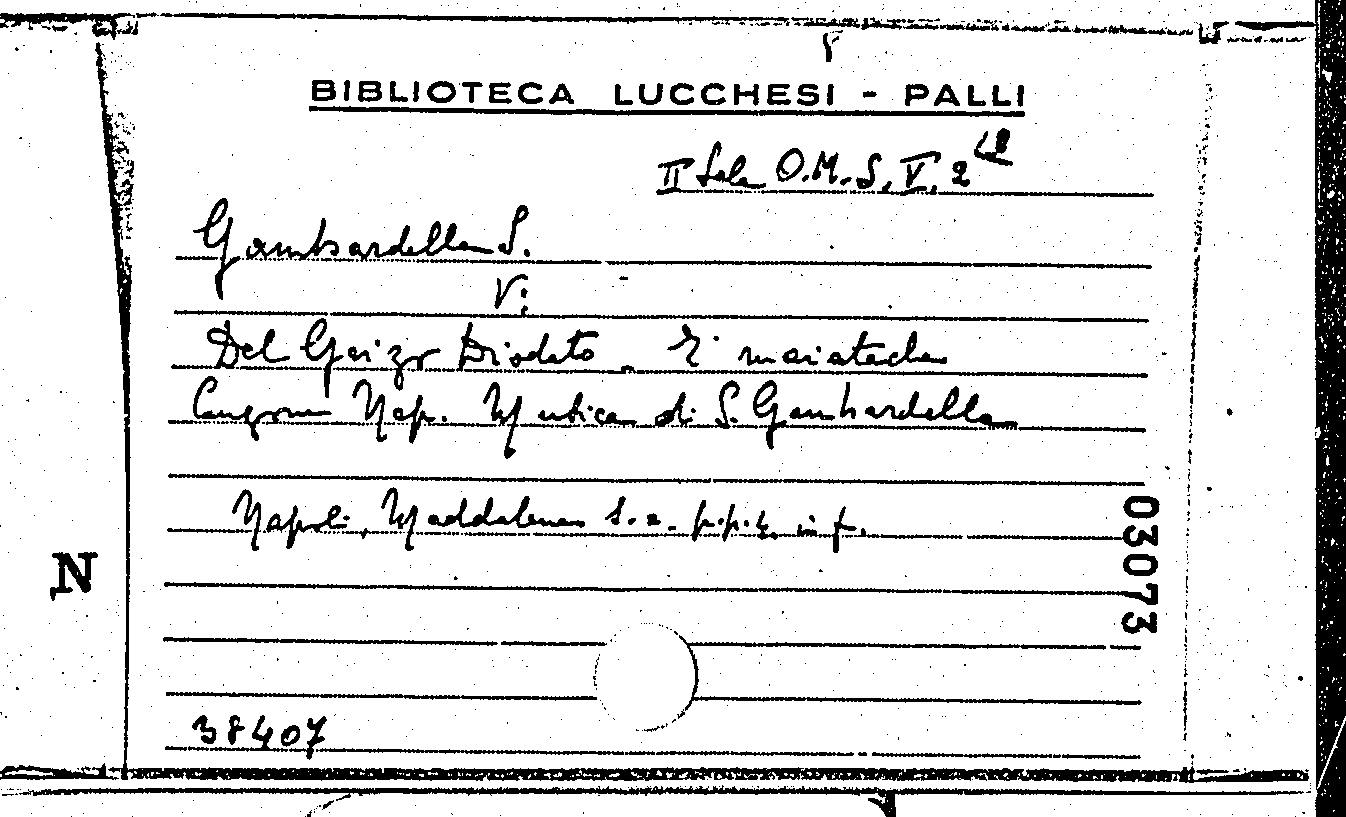 BIBLIOTECA LUCCHESI - PALLI
II Sala O.M.S. V. 2
Gambardella S.
V:
Del Gaizo Diodato
Canzone Nap. Musica di S. Gambardella
Napoli, Maddalena s.a. p.p.4. in f.
03073
N
38407